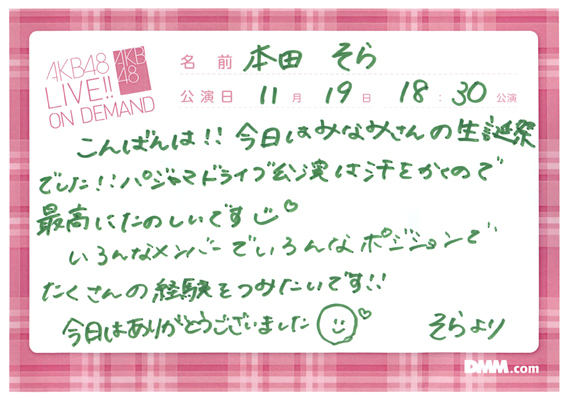 AKB48
LIVE!!
ON DEMAND
AKB
48
名前 本田 そら
公演日 11月19日 18:30公演
こんばんは!! 今日はみなみさんの生誕祭
でした!! パジャマドライブ公演は汗をかくので
最高にたのしいです
いろんなメンバーでいろんなポジションで
たくさんの経験をつみたいです!!
今日はありがとうございました
そらより
DMM.com